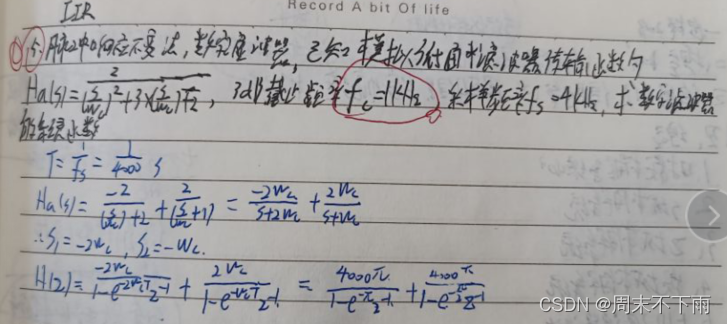 Record A bit Of life
IIR
例: 用脉冲响应不变法,数字低通滤波器,已知模拟低通滤波器传输函数为
Ha(s)=2/((s/wc)²+3×(s/wc)+2), 3dB截止频率fc=1kHz 采样频率fs=4kHz, 求数字滤波器
的系统函数
T=1/fs=1/4000 s
Ha(s)=-2/((s/wc)+2)+2/((s/wc)+1)=-2wc/(s+2wc)+2wc/(s+wc)
∴s₁=-2wc, s₂=-wc.
H(z)=-2wc/(1-e^(-2wcT)z⁻¹)+2wc/(1-e^(-wcT)z⁻¹)=4000π/(1-e^(-π)z⁻¹)+4000π/(1-e^(-π/2)z⁻¹)
CSDN @周末不下雨